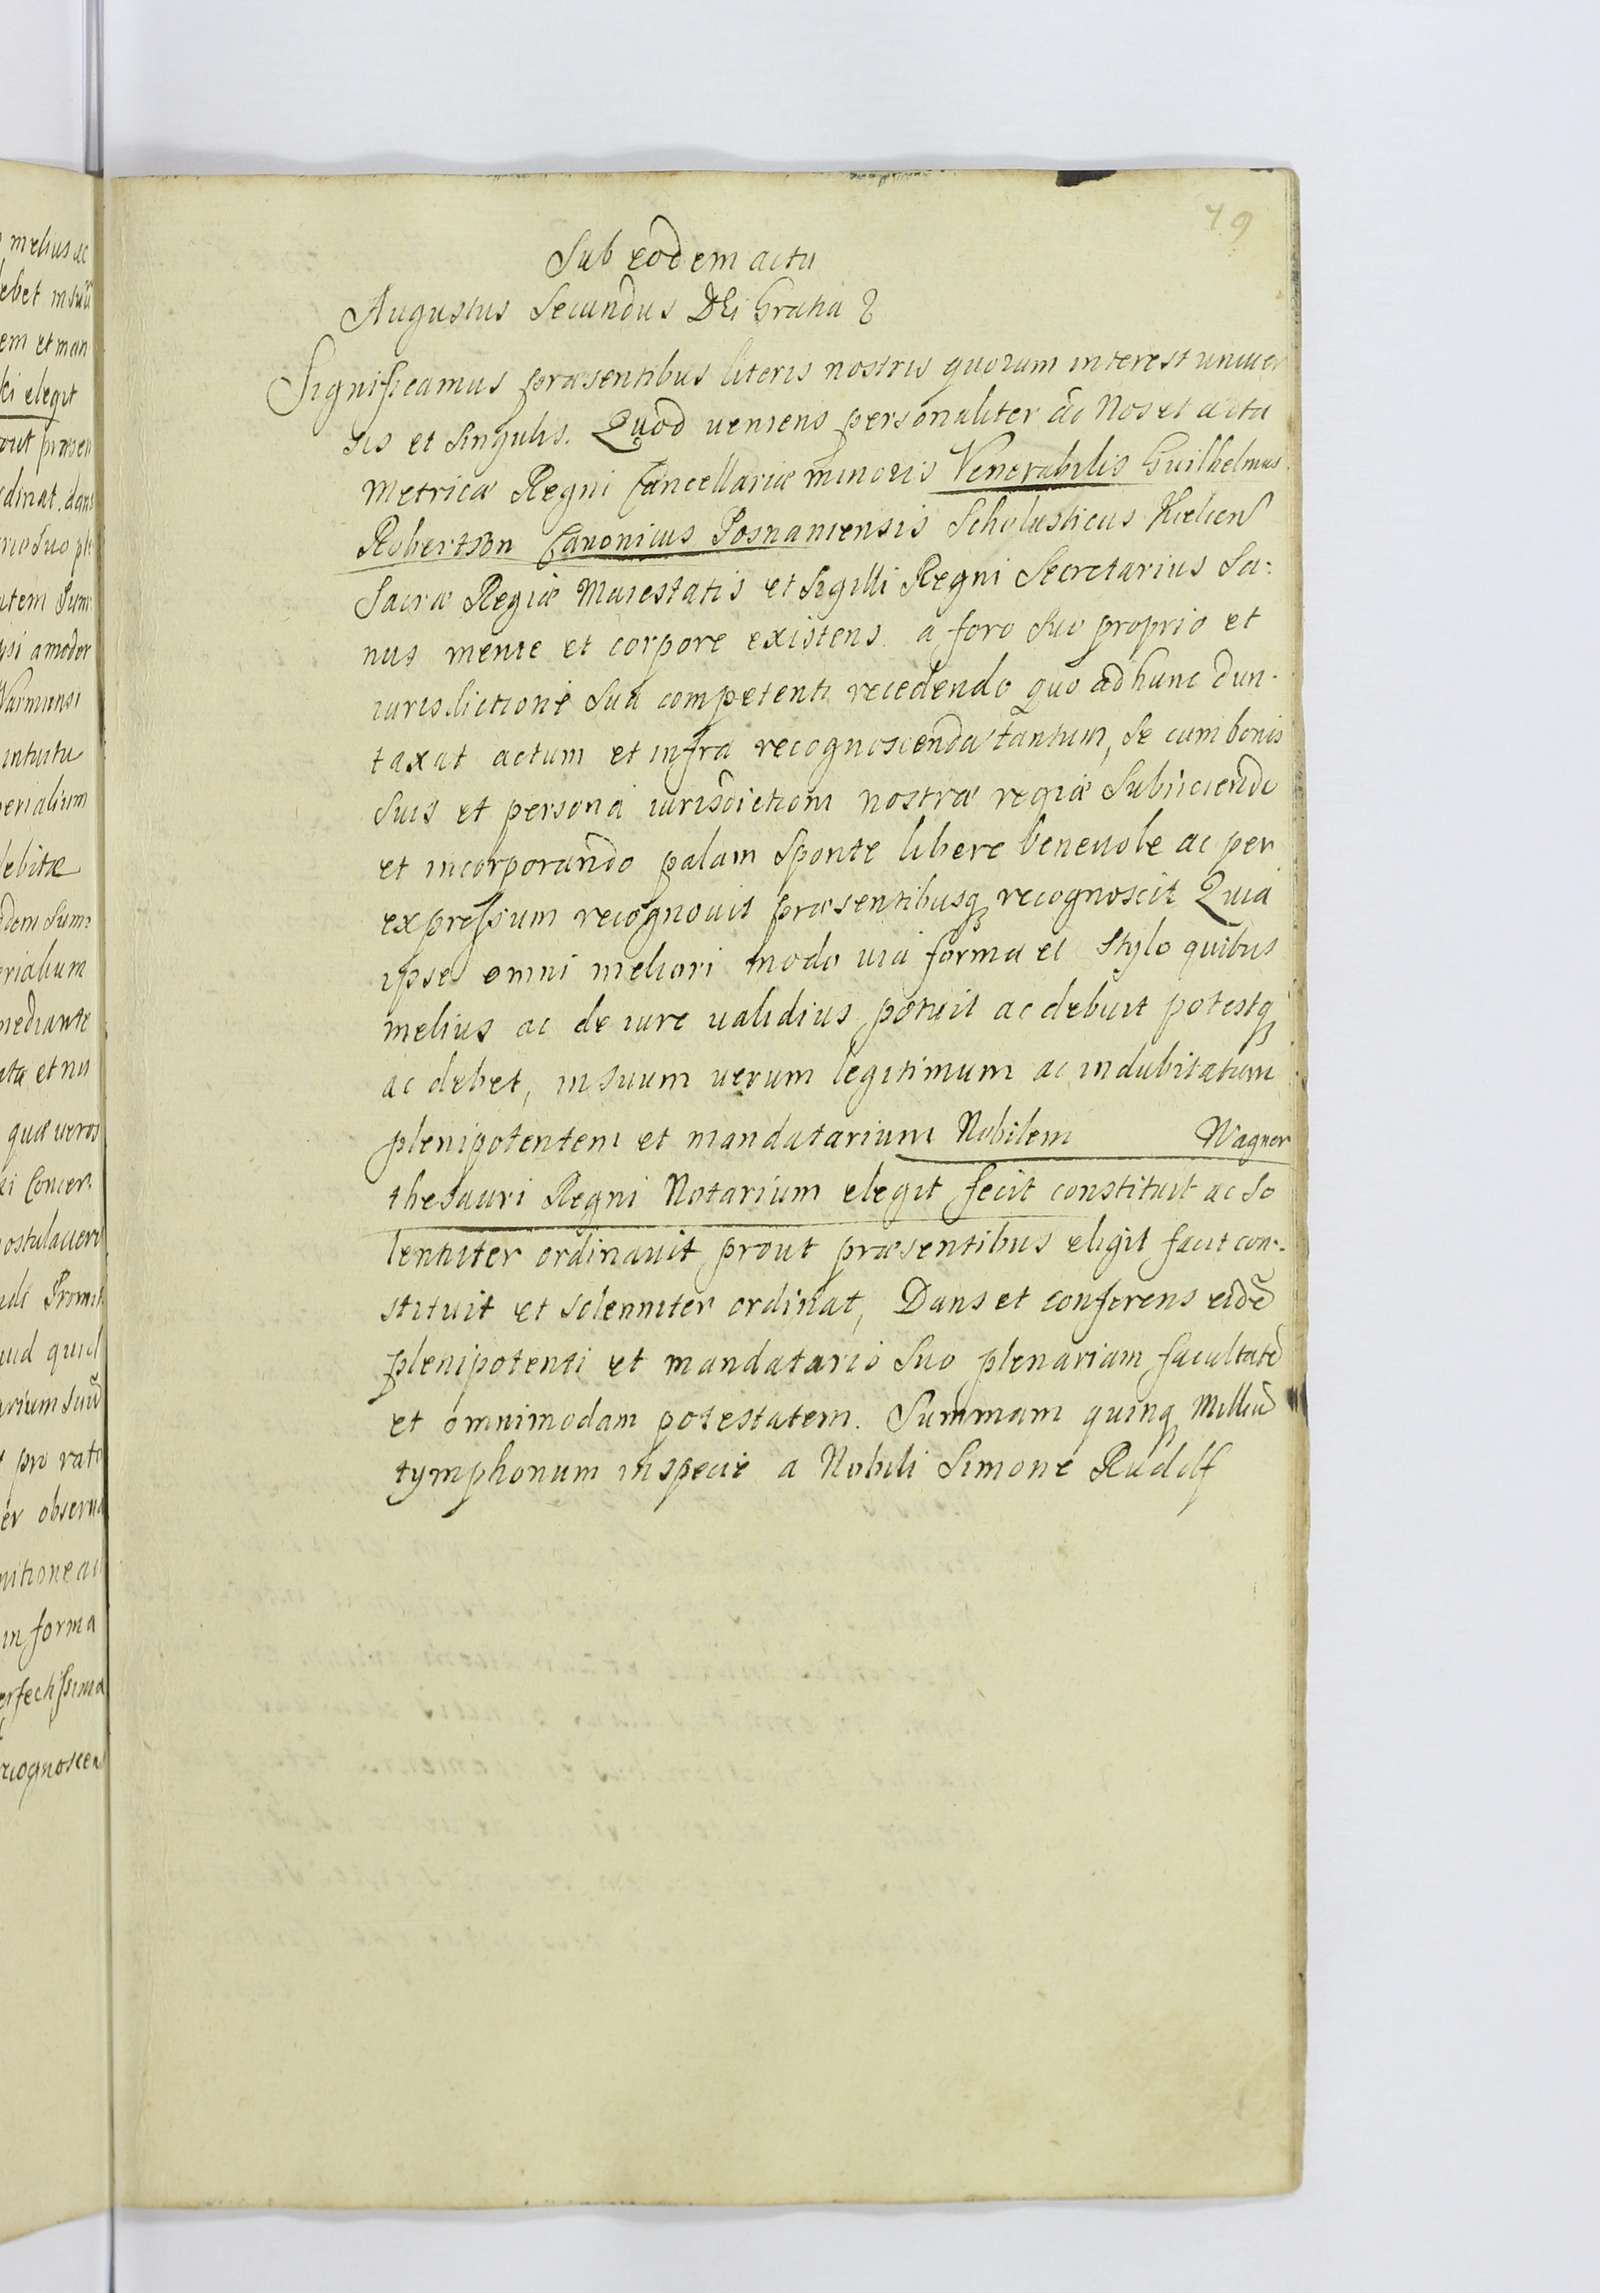 79
Sub eodem actu
Augustus Secundus DEi Gratia
Significamus præsentibus literis nostris quorum interest univer
sis et singulis. Quod veniens personaliter ad Nos et acta
Metricæ Regni Cancellariæ minoris Venerabilis Guilhelmus
Robertson Canonicus Posnaniensis Scholasticus Kielcen
Sacræ Regiæ Maiestatis et Sigilli Regni Secretarius Sa:
nus mente et corpore existens a foro suo proprio et
iurisdictione sua competenti recedendo quo ad hunc dun-
taxat actum et infra recognoscenda tantum, se cum bonis
suis et persona iurisdictioni nostræ regiæ subiiciendo
et incorporando palam sponte libere benevole ac per
expressum recognovit præsentibusq recognoscit Quia
ipse omni meliori modo via forma et stylo quibus
melius ac de iure validius potuit ac debuit potestq
ac debet, in suum verum legitimum ac indubitatum
plenipotentem et mandatarium Nobilem Wagner
thesauri Regni Notarium elegit fecit constituit ac so
lenniter ordinavit prout præsentibus eligit facit con-
stituit et solenniter ordinat, Dans et conferens eidẽ
plenipotenti et mandatario suo plenariam facultatẽ
et omnimodam potestatem. Summam quinq Milliũ
tymphonum in specie a Nobili Simone Rudolf
melius ac
ebet in suũ
em et man
ki elegit
out præsen
dinat. dans
rio suo ple
utem Sum
Varmiensi
intuitu
perialium
debitæ
dem Sum
erialium
mediante
ata et nu
quæ veros
Concer.
postulaveri
Promit
uid quid
arium suũ
pro rato
er observa
nitione ac
in forma
erfectissima
recognoscen